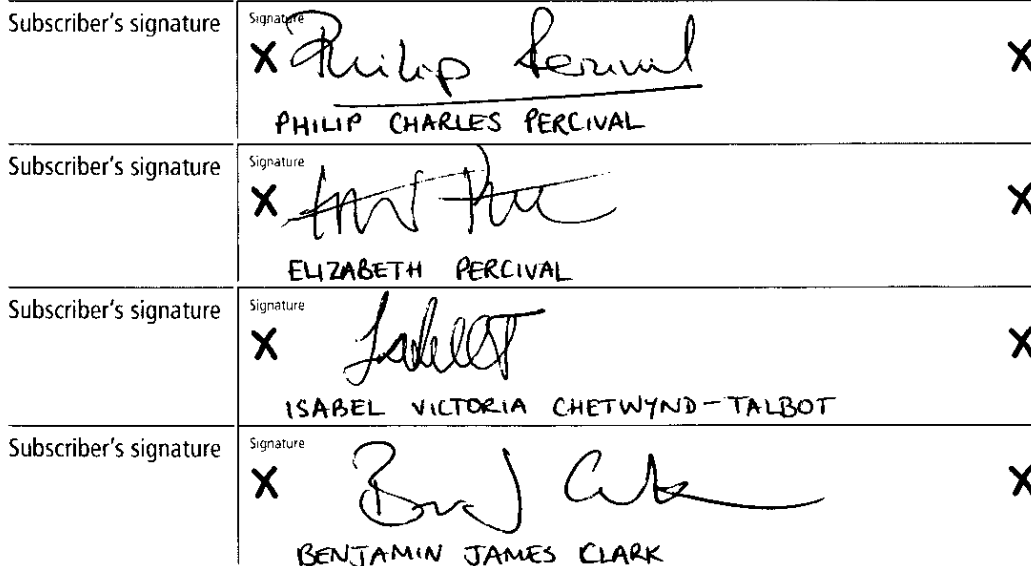 Subscriber's signature
Signature
X Philip Percival X
PHILIP CHARLES PERCIVAL
Subscriber's signature
Signature
X X
ELIZABETH PERCIVAL
Subscriber's signature
Signature
X X
ISABEL VICTORIA CHETWYND-TALBOT
Subscriber's signature
Signature
X X
BENJAMIN JAMES CLARK